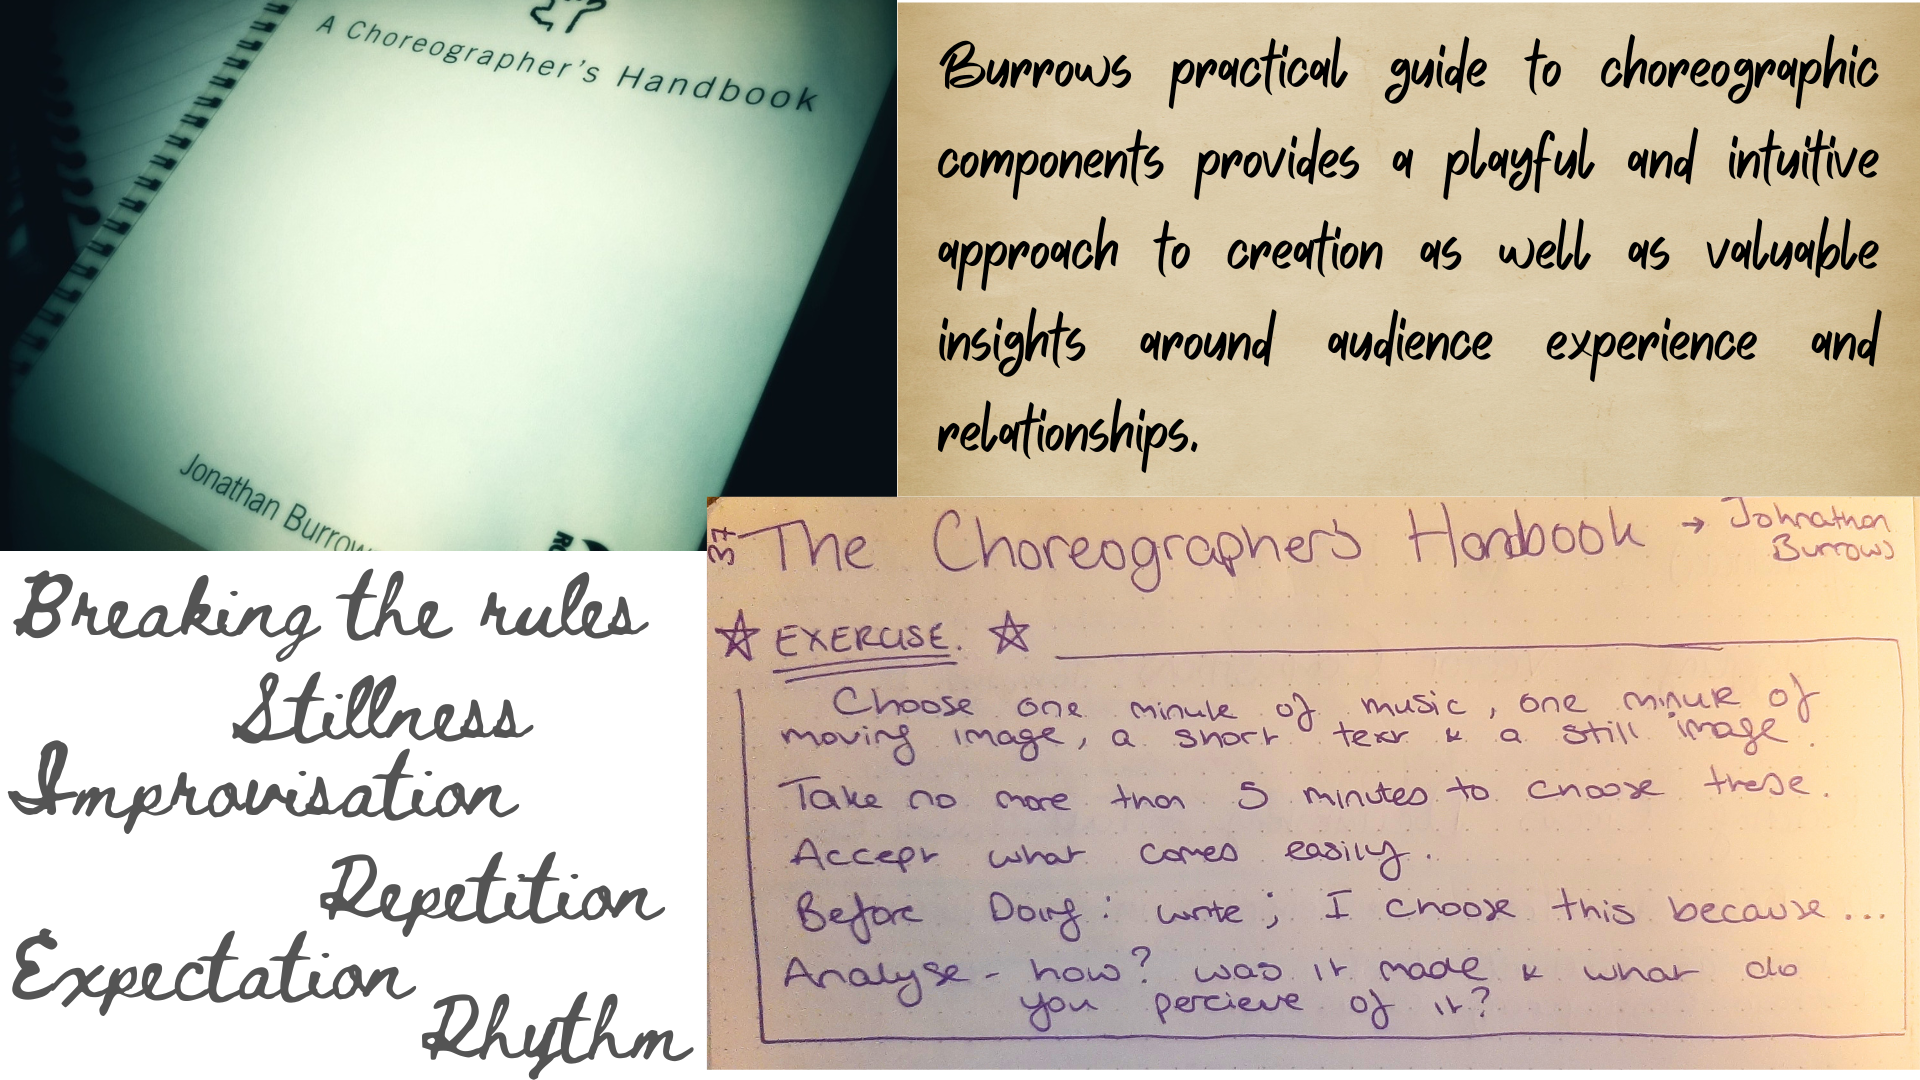 A Choreographer's Handbook
Jonathan Burrow
RO
Burrows practical guide to choreographic
components provides a playful and intuitive
approach to creation as well as valuable
insights around audience experience and
relationships.
Breaking the rules
Stillness
Improvisation
Repetition
Expectation
Rhythm
37
The Choreographer's Handbook → Johnathon
Burrows
EXERCISE.
Choose one minute of music, one minute of
moving image, a short text & a still image.
Take no more than 5 minutes to choose these.
Accept what comes easily.
Before Doing: write; I choose this because...
Analyse - how? was it made & what do
you percieve of it?